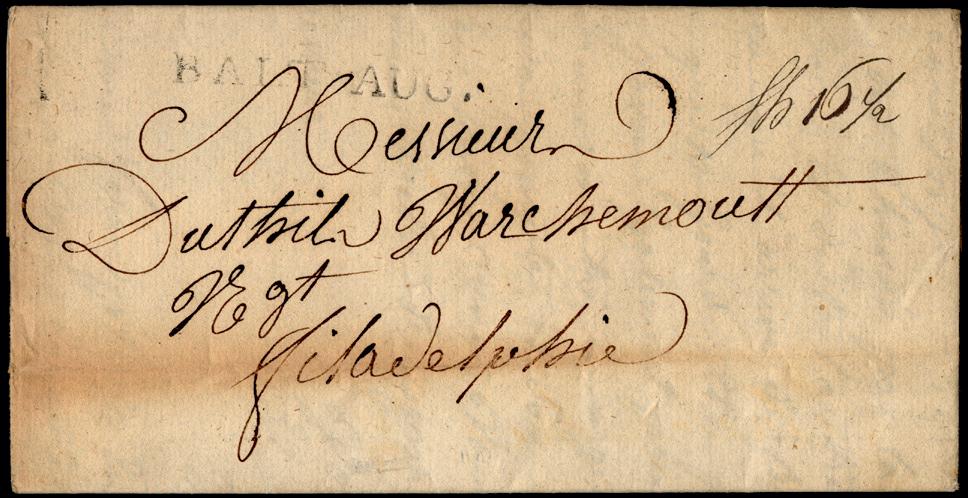 BALT AUG.
Messieurs
Duthil Warchemoutt
Ngt
filadelphie
16 1/2